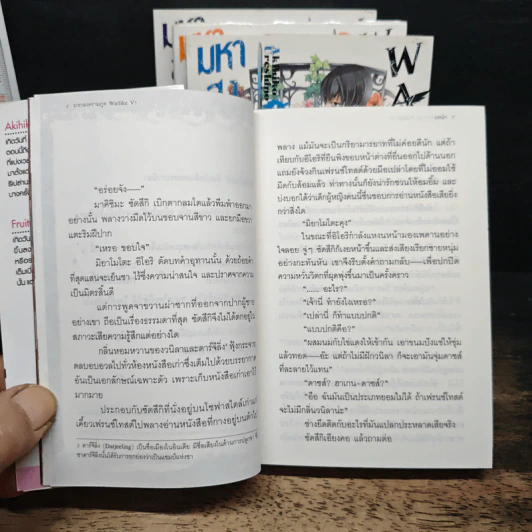 มหา
มหา
Akihiko
Oreshine
W
A
Akihik
เกิดวันที่
Fruit
เกิดวัน
"อร่อยจัง——"
มาคิชิมะ ชัตสึกิ เบิกตากลมโตแล้วพึมพำออกมา
อย่างนั้น พลางวางมีดไว้บนขอบจานสีขาว และยกมือขวา
แตะริมฝีปาก
"เหรอ ชอบใจ"
มิยาโมโตะ อิโอริ ตัดบทคำอุทานนั้น ด้วยถ้อยคำ
ที่สุดแสนจะเย็นชา ไร้ซึ่งความน่าสนใจ และปราศจากความ
เป็นมิตรสิ้นดี
แต่การพูดจาขวานผ่าซากที่ออกจากปากผู้ชาย
อย่างเขา ถือเป็นเรื่องธรรมดาที่สุด ชัตสึกิจึงไม่ได้ตกอยู่ใน
สภาวะเสียความรู้สึกแต่อย่างใด
กลิ่นหอมหวานของวนิลาและดาร์จีลิ่ง¹ ฟุ้งกระจาย
ตลบอบอวลไปทั่วห้องหนังสือเก่าซึ่งเต็มไปด้วยบรรยากาศ
อันเป็นเอกลักษณ์เฉพาะตัว เพราะเก็บหนังสือเก่าเอาไว้
มากมาย
ประกอบกับชัตสึกิที่นั่งอยู่บนโซฟาสไตล์เก่าแก่
เคี้ยวเฟรนช์โทสต์ไปพลางอ่านหนังสือที่กางอยู่บนตักไป
¹ ดาร์จีลิ่ง (Darjeeling) เป็นชื่อเมืองในอินเดีย มีชื่อเสียงในด้านการปลูกชา
ชาดาร์จีลิ่งนั้นได้รับการยกย่องว่าเป็นแชมป์แห่งชา
พลาง แม้มันจะเป็นกริยามารยาทที่ไม่ค่อยดีนัก แต่ถ้า
เทียบกับอิโอริที่ยืนพิงขอบหน้าต่างที่ยื่นออกไปด้านนอก
แถมยังจ้วงกินเฟรนช์โทสต์ด้วยมือเปล่าโดยที่ไม่ยอมใช้
มีดกับส้อมแล้ว ท่าทางนั้นก็ยังน่ารักชวนให้อมยิ้ม และ
บ่งบอกได้ว่าเด็กผู้หญิงคนนี้ชื่นชอบการอ่านหนังสือเสียยิ่ง
กว่าสิ่งใด
"มิยาโมโตะคุง"
ในขณะที่อิโอริกำลังแหงนหน้ามองเพดานอย่าง
ใจลอย จู่ๆ ชัตสึกิก็เงยหน้าขึ้นและส่งเสียงเรียกชายหนุ่ม
อย่างกะทันหัน เขาจึงรีบตั้งคำถามกลับ——เพื่อปกปิด
ความหวั่นวิตกที่ผุดพุ่งขึ้นมาเป็นครั้งคราว
"...... อะไร?"
"เจ้านี่ ทำยังไงเหรอ?"
"เปล่านี่ ก็ทำแบบปกติ"
"แบบปกติคือ?"
"ผสมนมกับไข่แดงให้เข้ากัน เอาขนมปังแช่ให้ชุ่ม
แล้วทอด—อ๊ะ แต่ถ้าไม่มีฝักวนิลา ก็จะเอามันจุ่มดาซส์
ที่ละลายไว้แทน"
"ดาซส์? ฮาเกน-ดาซส์?"
"อือ ฉันมันเป็นประเภทยอมไม่ได้ ถ้าเฟรนช์โทสต์
จะไม่มีกลิ่นวนิลาน่ะ"
ช่างยึดติดกับอะไรที่มันแปลกประหลาดเสียจริง
ชัตสึกิเอียงคอ แล้วถามต่อ